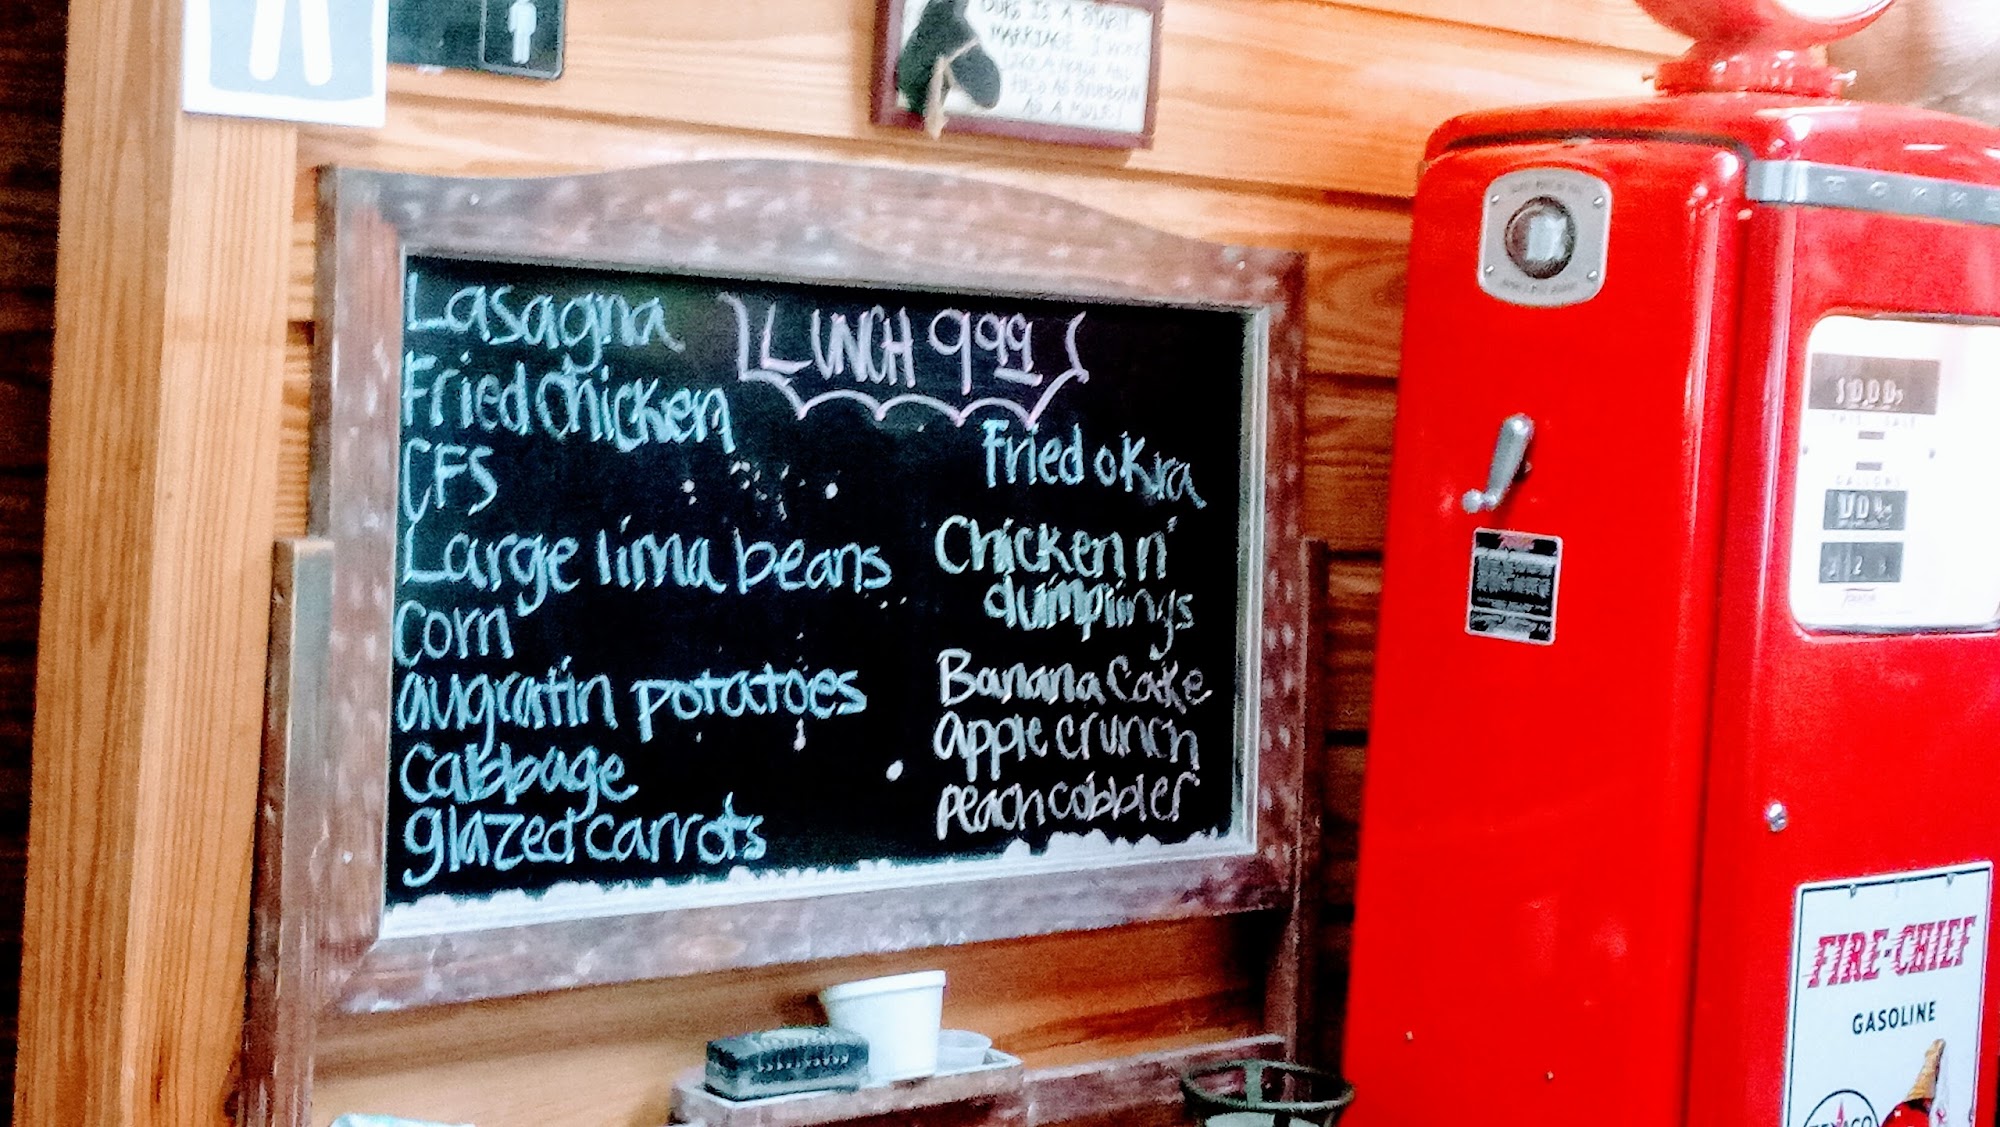 OURS IS A
MARRIAGE. I WORK
LIKE A HORSE AND
HE'S AS STUBBORN
AS A MULE!
Lasagna
Fried chicken
CFS
Large lima beans
Corn
augratin potatoes
Cabbage
glazed carrots
LUNCH 999
Fried okra
Chicken n'
dumplings
Banana Cake
apple crunch
peach cobbler
TOKHE
THIS SALE
GALLONS
FIRE-CHIEF
GASOLINE
TEXACO